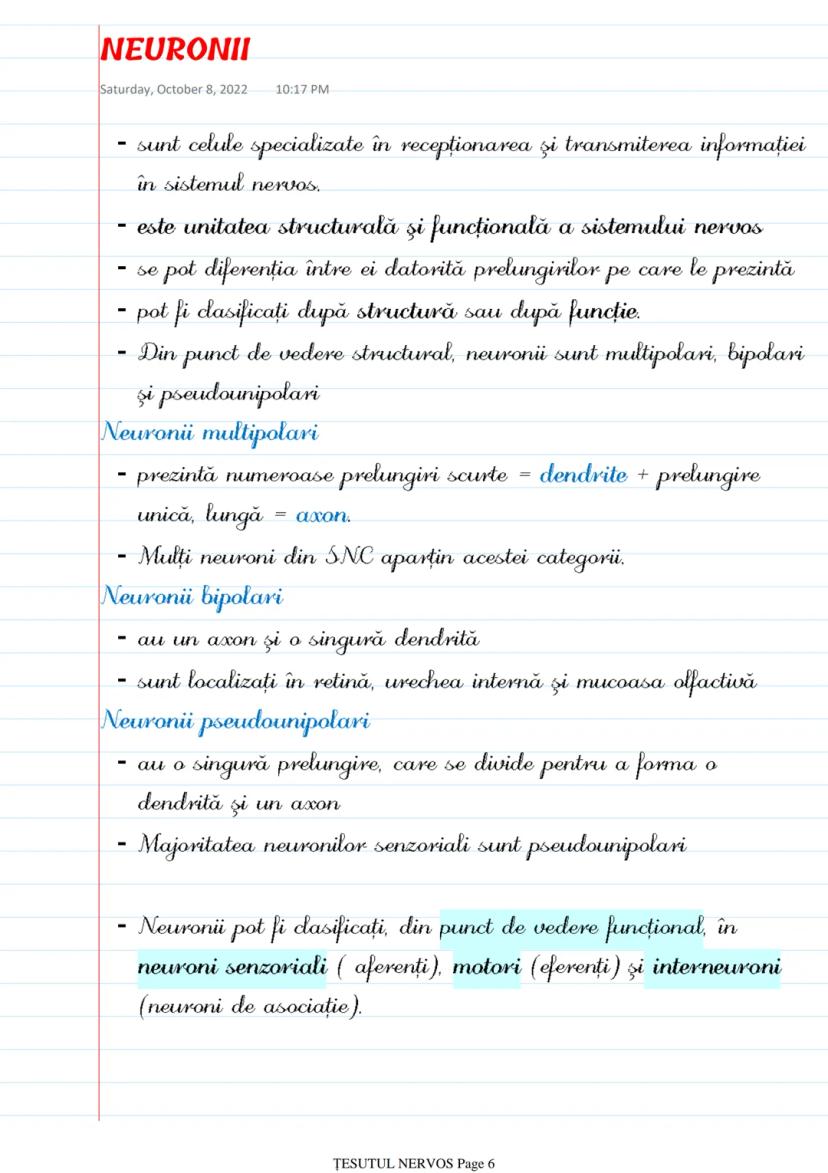 NEURONII
Saturday, October 8, 2022 10:17 PM
- sunt celule specializate în recepționarea și transmiterea informației
în sistemul nervos.
- este unitatea structurală și funcțională a sistemului nervos
- se pot diferenția între ei datorită prelungirilor pe care le prezintă
- pot fi clasificați după structură sau după funcție.
- Din punct de vedere structural, neuronii sunt multipolari, bipolari
și pseudounipolari
Neuronii multipolari
- prezintă numeroase prelungiri scurte = dendrite + prelungire
unică, lungă = axon.
- Mulți neuroni din SNC aparțin acestei categorii.
Neuronii bipolari
- au un axon și o singură dendrită
- sunt localizați în retină, urechea internă și mucoasa olfactivă
Neuronii pseudounipolari
- au o singură prelungire, care se divide pentru a forma o
dendrită și un axon
- Majoritatea neuronilor senzoriali sunt pseudounipolari
- Neuronii pot fi clasificați, din punct de vedere funcțional, în
neuroni senzoriali ( aferenți), motori (eferenți) și interneuroni
(neuroni de asociație).
ȚESUTUL NERVOS Page 6